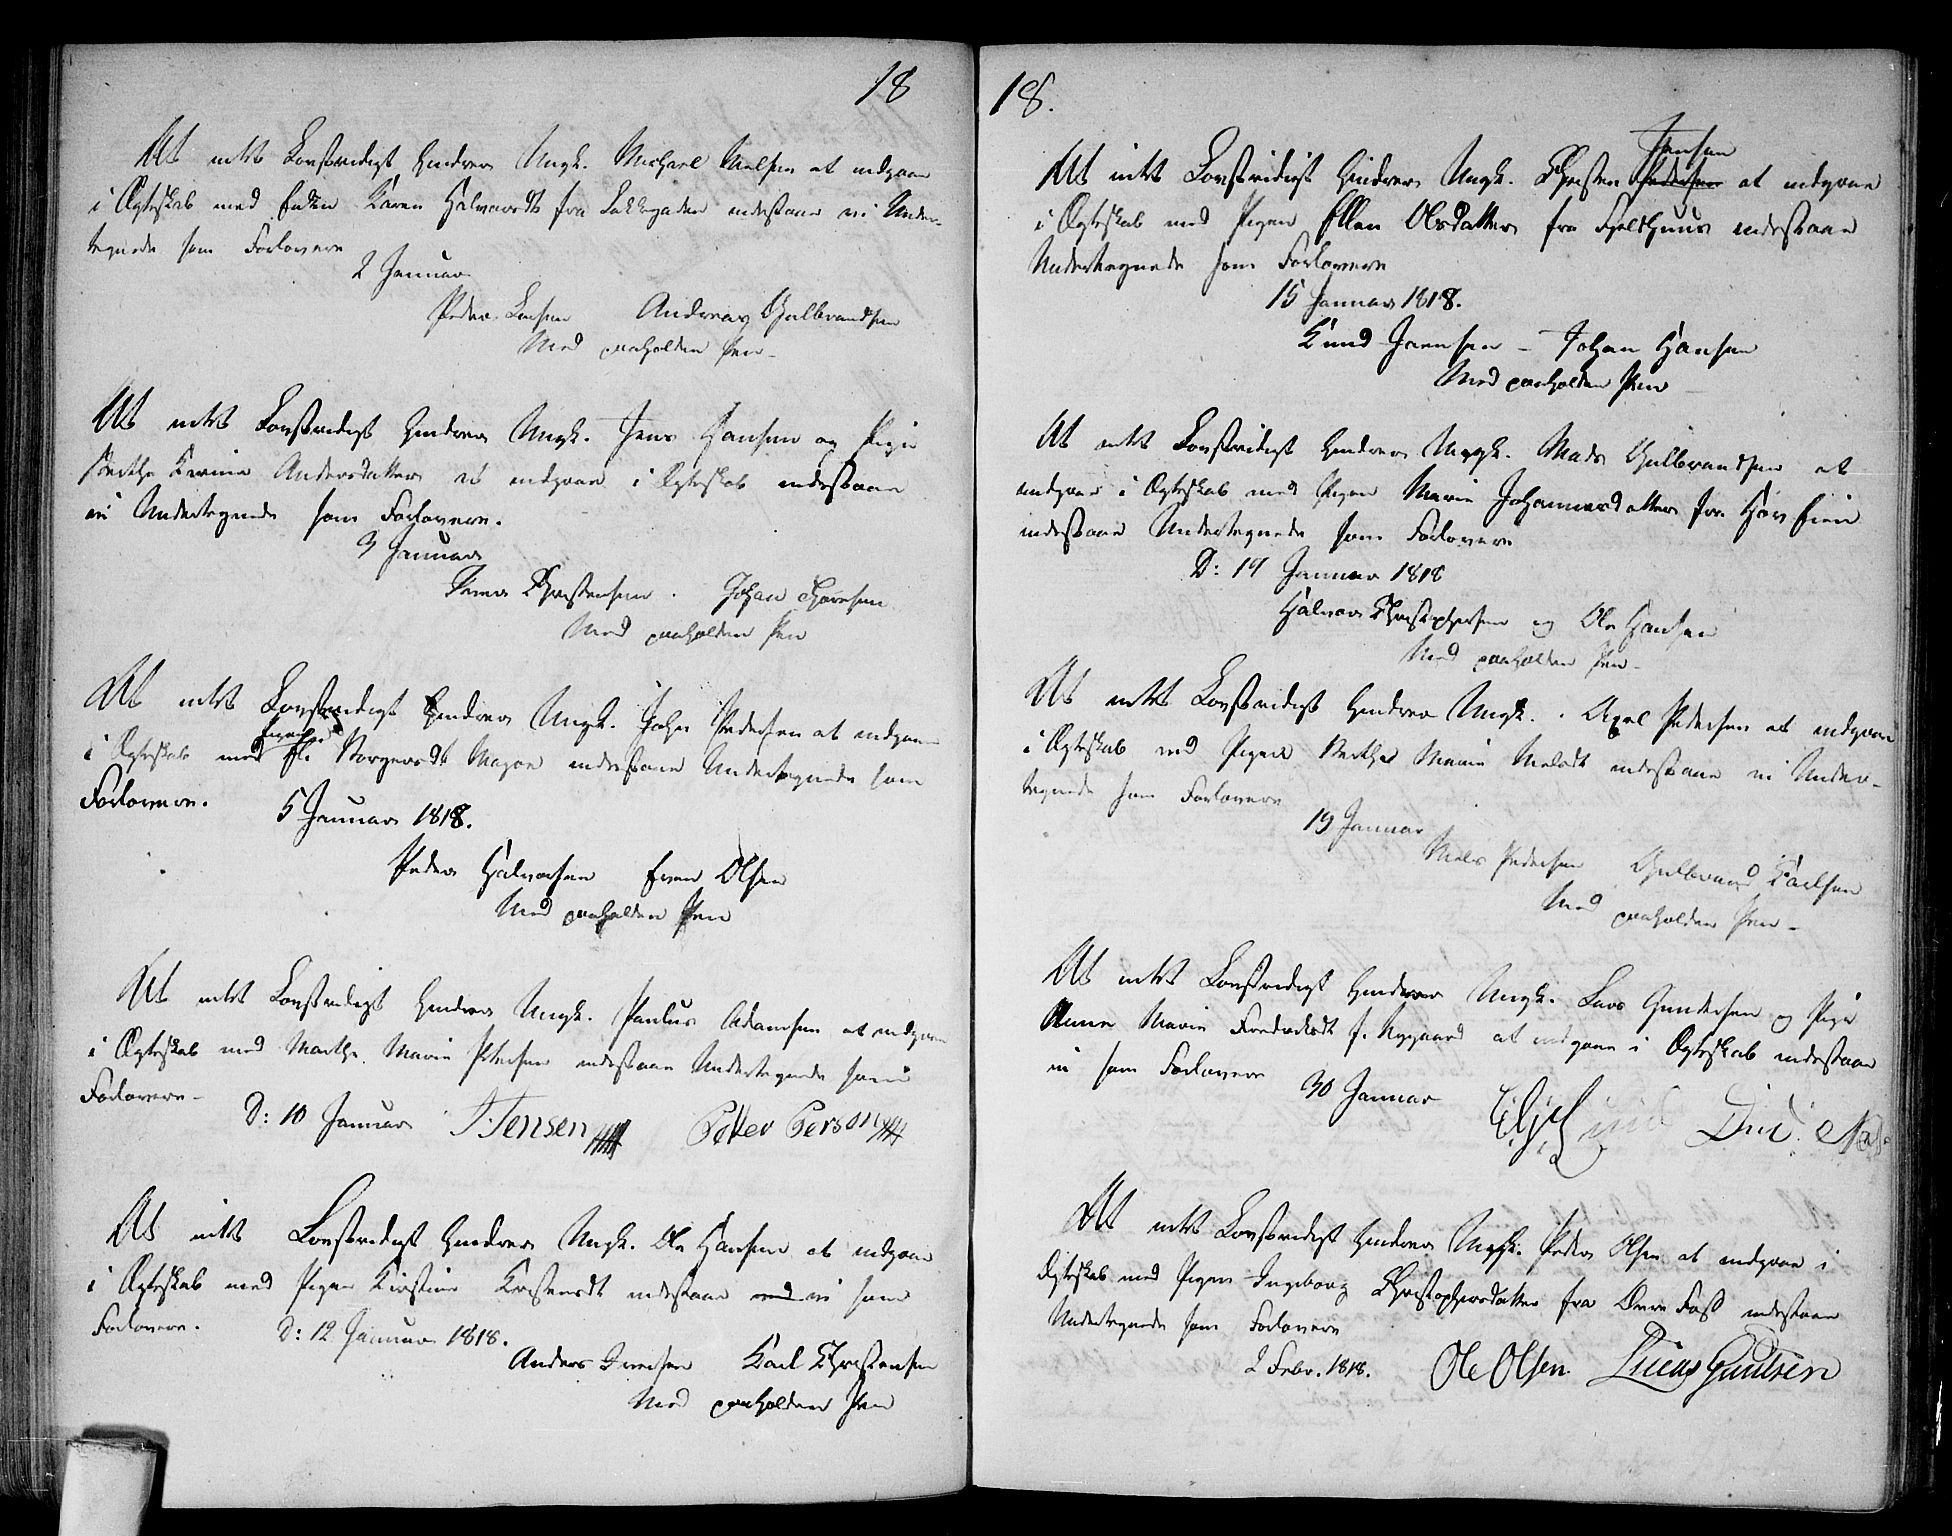 18
At intet Lovstridigt hindrer Ungk. Michael Nielsen at indgaae
i Ægteskab med Enken Karen Halvorsdt fra Sakkegaden indestaae vi Under-
tegnede som Forlovere
2 Januar
Peder Larsen Andreas Gulbrandsen
Med paaholden Pen
At intet Lovstridigt hindrer Ungk. Jens Hansen og Pige
Berthe Karine Andersdatter at indgaae i Ægteskab indestaae
vi Undertegnede som Forlovere.
3 Januar
Christensen. Johan
Med paaholden Pen
At intet Lovstridigt hindrer Ungk. John Pedersen at indgaae
i Ægteskab med Eli Norgersdt indestaae Undertegnede som
Forlovere.
5 Januar 1818.
Peder Halvorsen Even Olsen
Med paaholden Pen
At intet Lovstridigt hindrer Ungk. Paulus Adamsen at indgaae
i Ægteskab med Marthe Marie Petersen indestaae Undertegnede som
Forlovere-
D: 10 Januar J: Jensen Petter Person
At intet Lovstridigt hindrer Ungk. Ole Hansen at indgaae
i Ægteskab med Pigen Kirstine indestaae vi som
Forlovere.
D: 12 Januar 1818.
Anders Iversen Karl Christensen
Med paaholden Pen
18.
Jensen
At intet Lovstridigt hindrer Ungk. Christen Pedersen at indgaae
i Ægteskab med Pigen Ellen Olsdatter fra Fjeldhuus indestaae
Undertegnede som Forlovere
15 Januar 1818.
Knud Jensen - Johan Hansen
Med paaholden Pen
At intet Lovstridigt hindrer Ungk. Mads Gulbrandsen at
indgaae i Ægteskab med Pigen Marie Johannesdatter fra Høv Eie
indestaae Undertegnede som Forlovere
D: 19 Januar 1818
Halvor Christophersen og Ole Hansen
Med paaholden Pen-
At intet Lovstridigt hindrer Ungk. Axel Pedersen at indgaae
i Ægteskab med Pigen Berthe Marie indestaae vi Under-
tegnede som Forlovere
19 Januar
Niels Pedersen Gulbrand Karlsen
Med paaholden Pen-
At intet Lovstridigt hindrer Ungk. Lars Gundersen og Pige
Anne Marie Fredriksdt f. Nygaard at indgaae i Ægteskab indestaae
vi som Forlovere
30 Januar
At intet Lovstridigt hindrer Ungk. Peder Olsen at indgaae i
Ægteskab med Pigen Ingeborg Christophersdatter fra Øvre Foss indestaae
Undertegnede som Forlovere
2 Febr. 1818. Ole Olsen Lucas